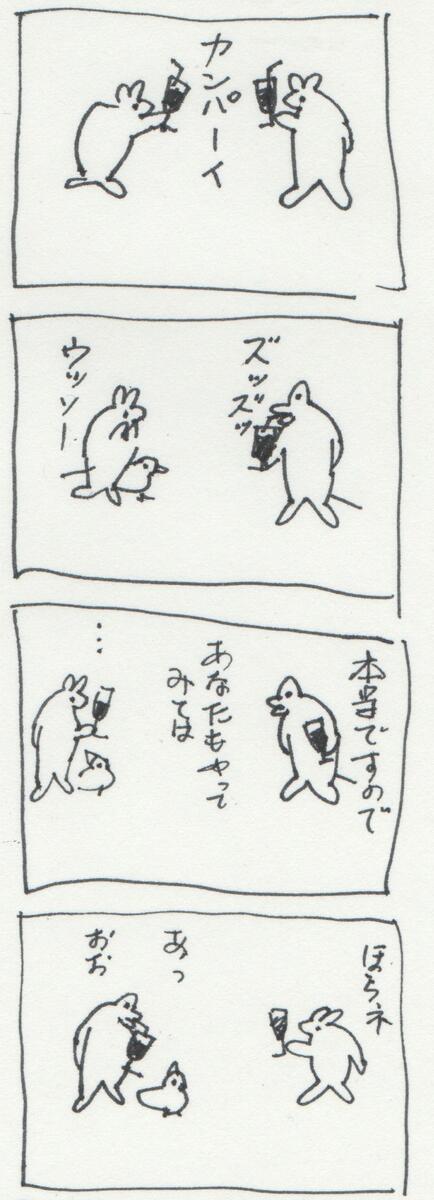 カンパーイ
ズッズッ
ウッソー
本当ですので
あなたもやって
みては
…
ほらネ
あっ
おお